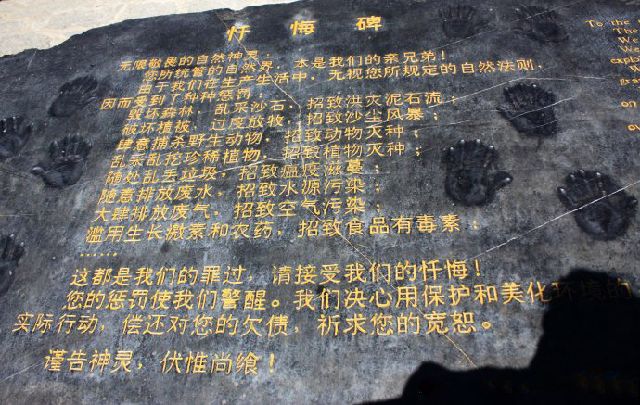 忏悔碑
无限敬畏的自然神灵：
您所统管的自然界，本是我们的亲兄弟！
由于我们在生产生活中，无视您所规定的自然法则，
因而受到了种种惩罚：
毁坏森林，乱采沙石，招致洪灾泥石流；
破坏植被，过度放牧，招致沙尘风暴；
肆意捕杀野生动物，招致动物灭种；
乱采乱挖珍稀植物，招致植物灭种；
随处乱丢垃圾，招致瘟疫滋蔓；
随意排放废水，招致水源污染；
大肆排放废气，招致空气污染；
滥用生长激素和农药，招致食品有毒素；
……
这都是我们的罪过，请接受我们的忏悔！
您的惩罚使我们警醒。我们决心用保护和美化环境的
实际行动，偿还对您的欠债，祈求您的宽恕。
谨告神灵，伏惟尚飨！
To the
The
We